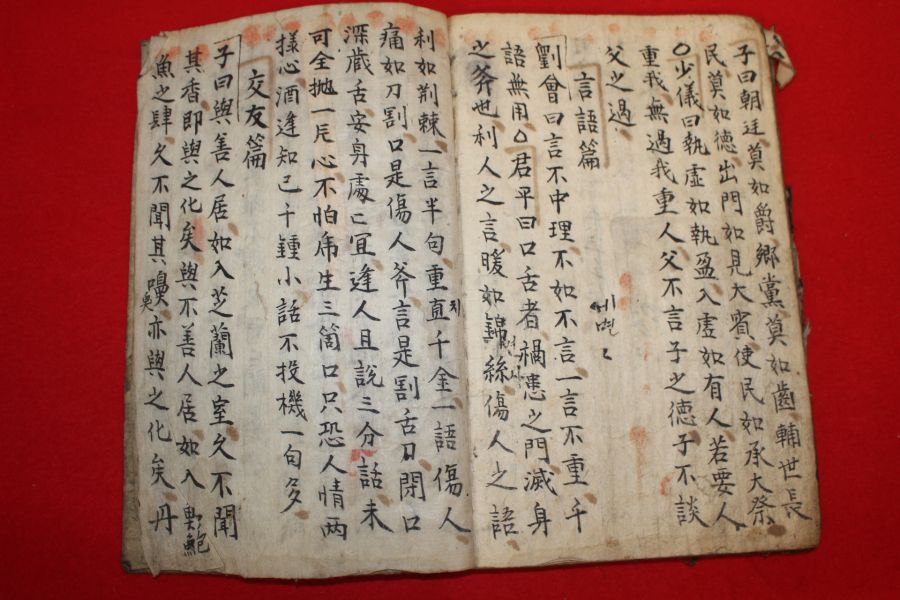 子曰朝廷莫如爵鄕黨莫如齒輔世長
民莫如德出門如見大賓使民如承大祭
〇少儀曰執虛如執盈入虛如有人若要人
重我無過我重人父不言子之德子不談
父之過
言語篇
劉會曰言不中理不如不言一言不重千
語無用〇君平曰口舌者禍患之門滅身
之斧也利人之言暖如錦絲傷人之語
利如荆棘一言半句重直千金一語傷人
痛如刀割口是傷人斧言是割舌刀閉口
深藏舌安身處〻宜逢人且說三分話未
可全抛一片心不怕虎生三箇口只恐人情两
樣心酒逢知已千鍾小話不投機一句多
交友篇
子曰與善人居如入芝蘭之室久不聞
其香即與之化矣與不善人居如入鮑
魚之肆久不聞其嗅亦與之化矣丹